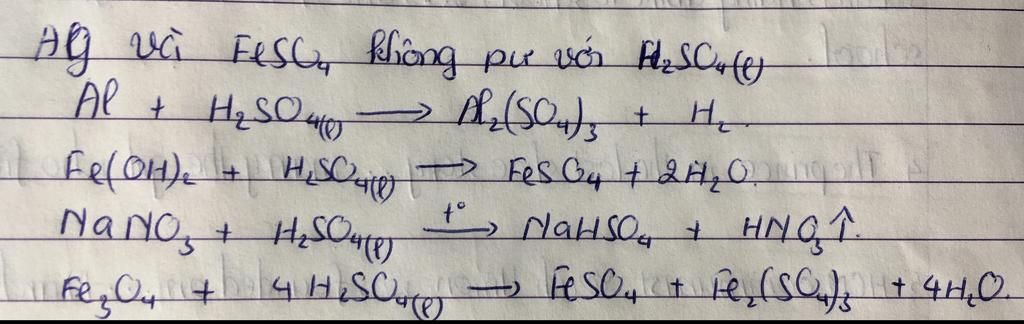 Ag và FeSO₄ không pư với H₂SO₄(l)
Al + H₂SO₄(l) ⟶ Al₂(SO₄)₃ + H₂.
Fe(OH)₂ + H₂SO₄(l) ⟶ FeSO₄ + 2H₂O.
NaNO₃ + H₂SO₄(l) t° ⟶ NaHSO₄ + HNO₃↑.
Fe₃O₄ + 4H₂SO₄(l) ⟶ FeSO₄ + Fe₂(SO₄)₃ + 4H₂O.